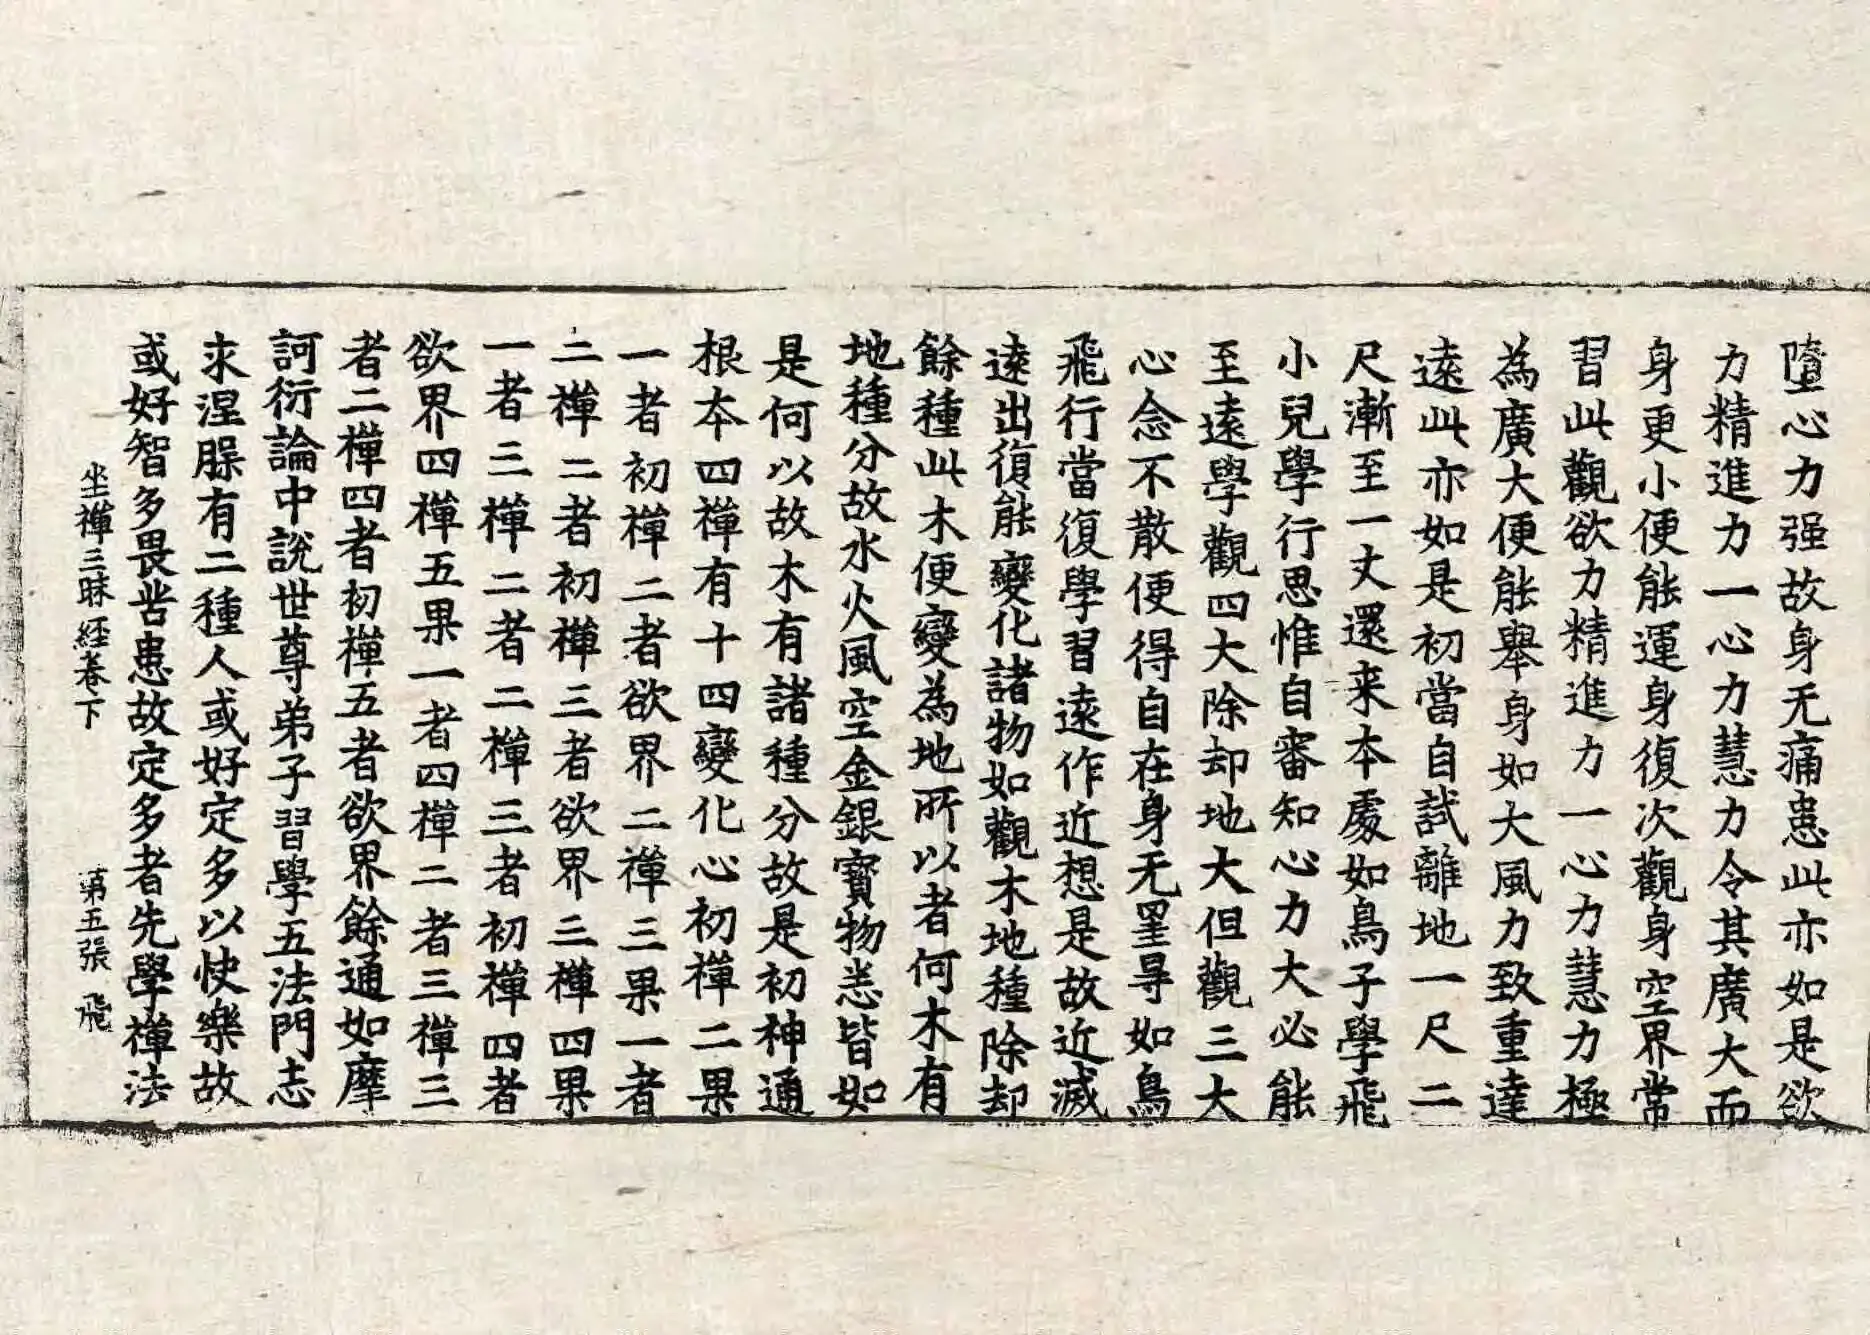 墮心力强故身无痛患此亦如是欲
力精進力一心力慧力令其廣大而
身更小便能運身復次觀身空界常
習此觀欲力精進力一心力慧力極
為廣大便能舉身如大風力致重達
遠此亦如是初當自試離地一尺二
尺漸至一丈還来本處如鳥子學飛
小兒學行思惟自審知心力大必能
至遠學觀四大除却地大但觀三大
心念不散便得自在身无罣㝵如鳥
飛行當復學習遠作近想是故近滅
遠出復能變化諸物如觀木地種除却
餘種此木便變為地所以者何木有
地種分故水火風空金銀寶物悉皆如
是何以故木有諸種分故是初神通
根本四禪有十四變化心初禪二果
一者初禪二者欲界二禪三果一者
二禪二者初禪三者欲界三禪四果
一者三禪二者二禪三者初禪四者
欲界四禪五果一者四禪二者三禪三
者二禪四者初禪五者欲界餘通如摩
訶衍論中說世尊弟子習學五法門志
求涅槃有二種人或好定多以快樂故
或好智多畏苦患故定多者先學禪法
坐禪三昧經卷下 第五張 飛